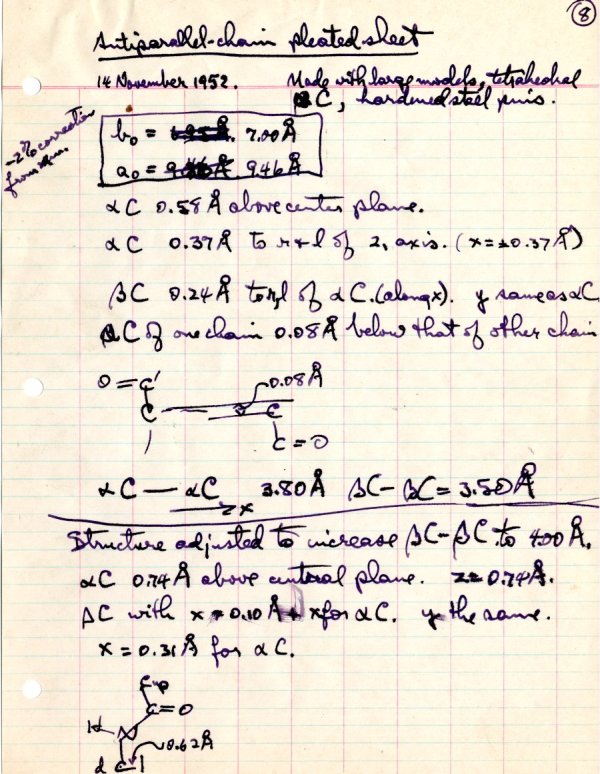 8
Antiparallel-chain pleated sheet
14 November 1952. Made with large models, tetrahedral
βC, hardened steel pins.
-2% correction
from
b₀ = 7.00 Å
a₀ = 9.46 Å
αC 0.58 Å above center plane.
αC 0.37 Å to r + l of 2₁ axis. (x = ±0.37 Å)
βC 0.24 Å to r, l of αC. (along x). y same as αC.
αC of one chain 0.08 Å below that of other chain
O = C' 0.08 Å
C C
C = O
αC — αC 3.80 Å βC - βC = 3.50 Å
Structure adjusted to increase βC - βC to 4.00 Å.
αC 0.74 Å above central plane. z = 0.74 Å.
βC with x = 0.10 Å + x for αC. y the same.
x = 0.31 Å for αC.
C = O
H N
0.62 Å
α C